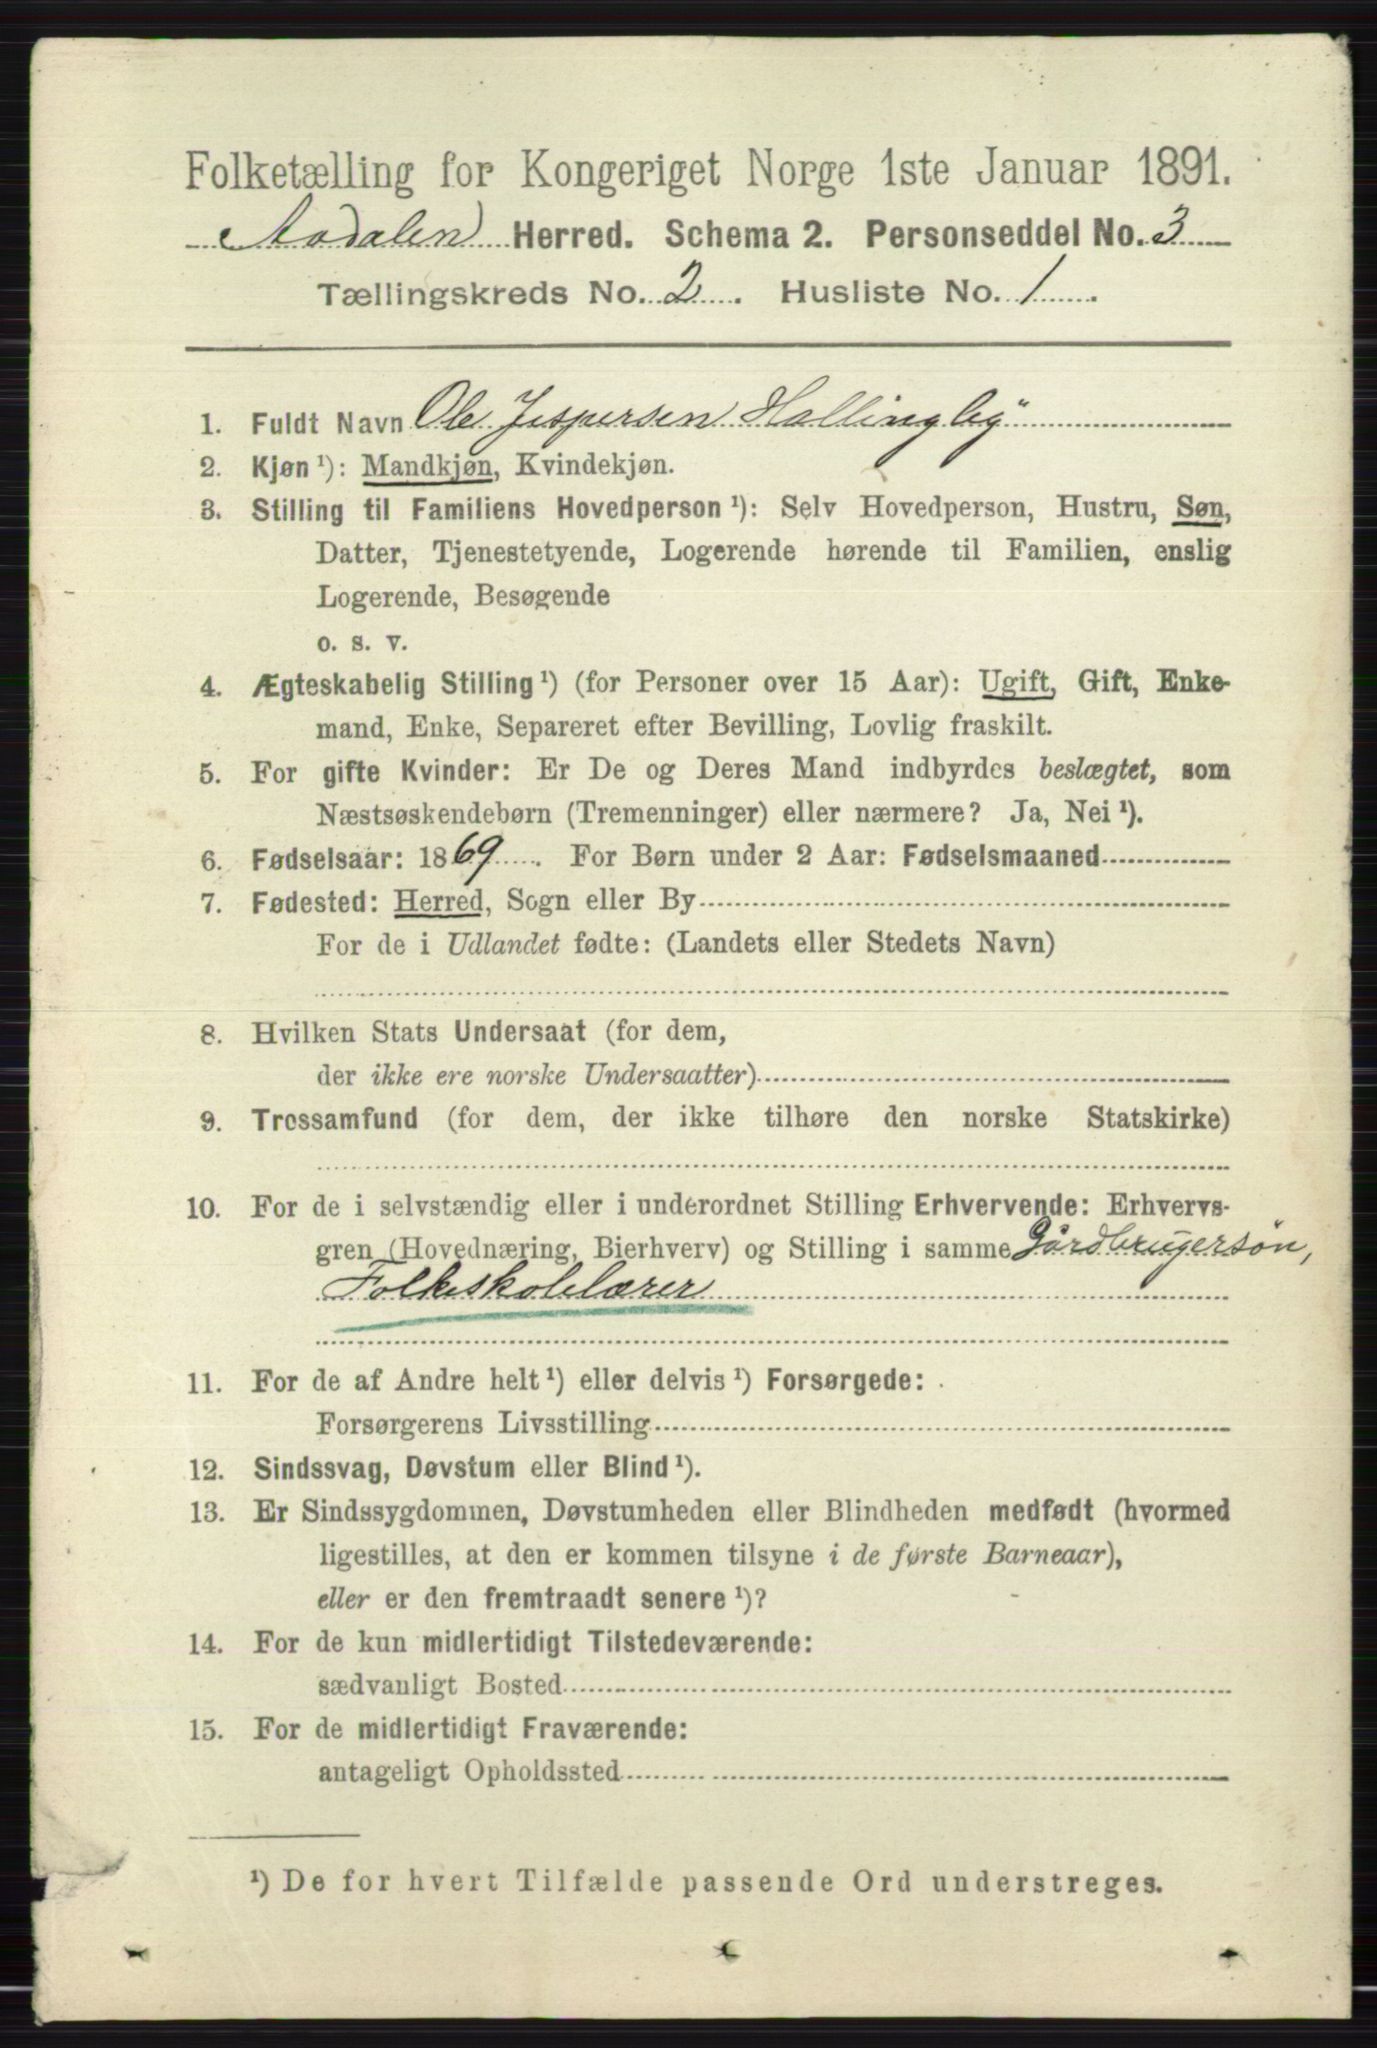 Folketælling for Kongeriget Norge 1ste Januar 1891.
Aadalen Herred. Schema 2. Personseddel No. 3
Tællingskreds No. 2. Husliste No. 1.
1. Fuldt Navn Ole Jespersen Hallingby
2. Kjøn ¹): Mandkjøn, Kvindekjøn.
3. Stilling til Familiens Hovedperson ¹): Selv Hovedperson, Hustru, Søn,
Datter, Tjenestetyende, Logerende hørende til Familien, enslig
Logerende, Besøgende
o. s. v.
4. Ægteskabelig Stilling ¹) (for Personer over 15 Aar): Ugift, Gift, Enke-
mand, Enke, Separeret efter Bevilling, Lovlig fraskilt.
5. For gifte Kvinder: Er De og Deres Mand indbyrdes beslægtet, som
Næstsøskendebørn (Tremenninger) eller nærmere? Ja, Nei ¹).
6. Fødselsaar: 1869. For Børn under 2 Aar: Fødselsmaaned
7. Fødested: Herred, Sogn eller By
For de i Udlandet fødte: (Landets eller Stedets Navn)
8. Hvilken Stats Undersaat (for dem,
der ikke ere norske Undersaatter)
9. Trossamfund (for dem, der ikke tilhøre den norske Statskirke)
10. For de i selvstændig eller i underordnet Stilling Erhvervende: Erhvervs-
gren (Hovednæring, Bierhverv) og Stilling i samme Gårdbrugersøn,
Folkeskolelærer
11. For de af Andre helt ¹) eller delvis ¹) Forsørgede:
Forsørgerens Livsstilling
12. Sindssvag, Døvstum eller Blind ¹).
13. Er Sindssygdommen, Døvstumheden eller Blindheden medfødt (hvormed
ligestilles, at den er kommen tilsyne i de første Barneaar),
eller er den fremtraadt senere ¹)?
14. For de kun midlertidigt Tilstedeværende:
sædvanligt Bosted
15. For de midlertidigt Fraværende:
antageligt Opholdssted
¹) De for hvert Tilfælde passende Ord understreges.